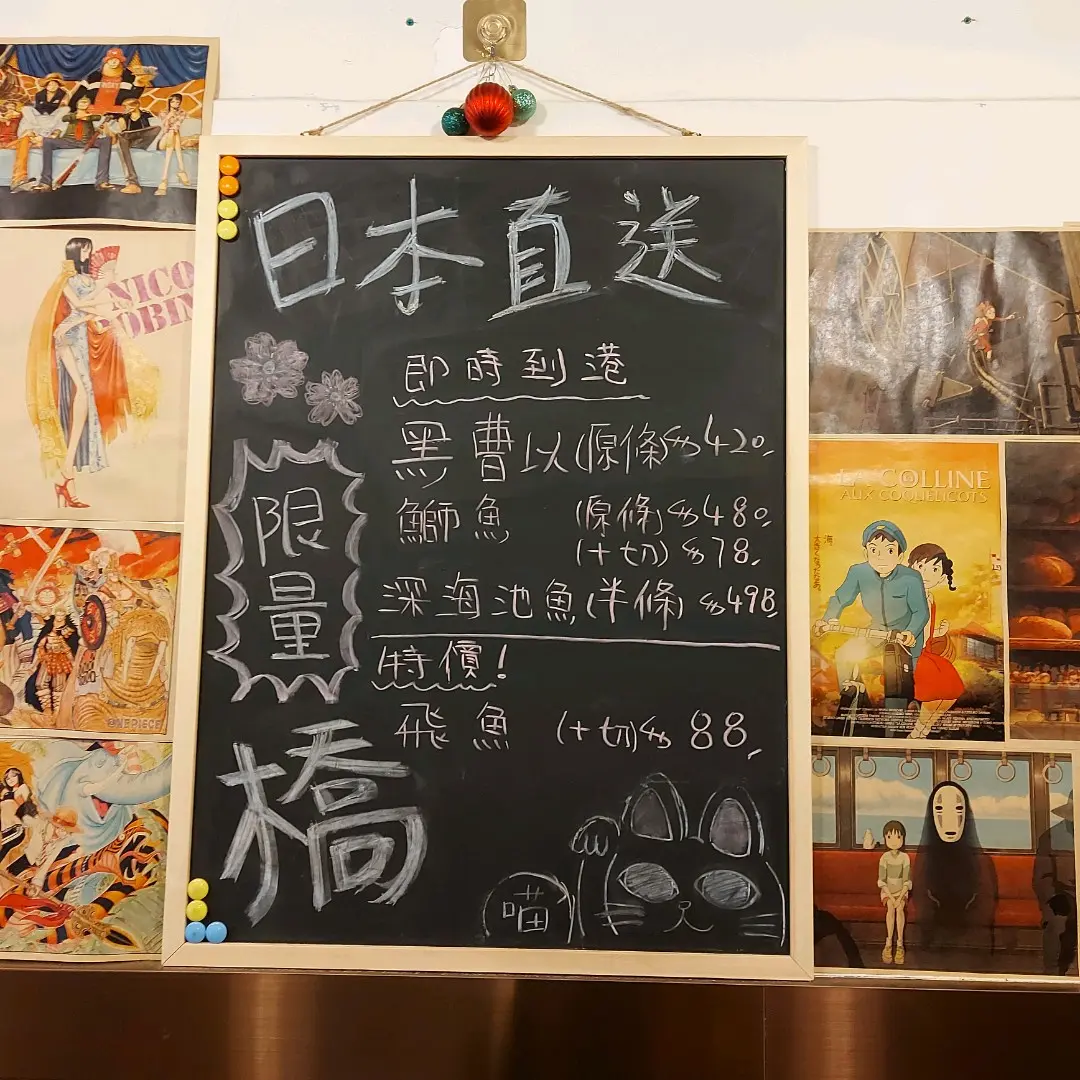 日本直送
即時到港
黑曹以(原條)$420
鰤魚 (原條)$480
(十切)$78
深海池魚(半條)$498
特價!
飛魚 (十切)$88
限量
橋
喵
NICO
ROBIN
ONEPIECE
LA COLLINE
AUX COQUELICOTS